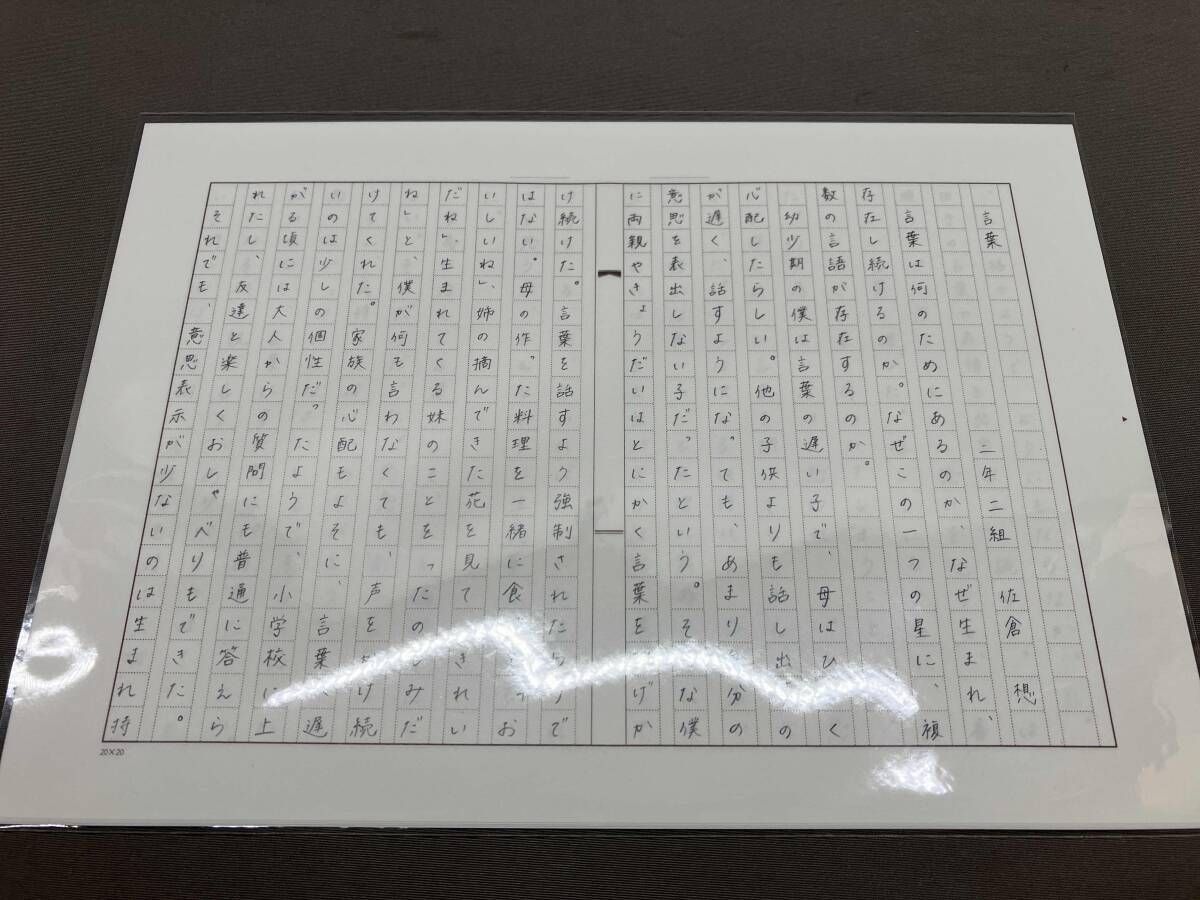 言葉
三年二組 佐倉 想
言葉は何のためにあるのか、なぜ生まれ、
存在し続けるのか。なぜこの一つの星に、複
数の言語が存在するのか。
幼少期の僕は言葉の遅い子で、母はひどく
心配したらしい。他の子供よりも話し出すの
が遅く、話すようになっても、あまり自分の
意思を表出しない子だったという。そんな僕
に両親やきょうだいはとにかく言葉を投げか
け続けた。言葉を話すよう強制されたわけで
はない。母の作った料理を一緒に食べ「お
いしいね」、姉の摘んできた花を見て「きれい
だね」、生まれてくる妹のことを「たのしみだ
ね」と、僕が何も言わなくても、声をかけ続
けてくれた。家族の心配もよそに、言葉が遅
いのは少しの個性だったようで、小学校に上
がる頃には大人からの質問にも普通に答えら
れたし、友達と楽しくおしゃべりもできた。
それでも、意思表示が少ないのは生まれ持
20×20